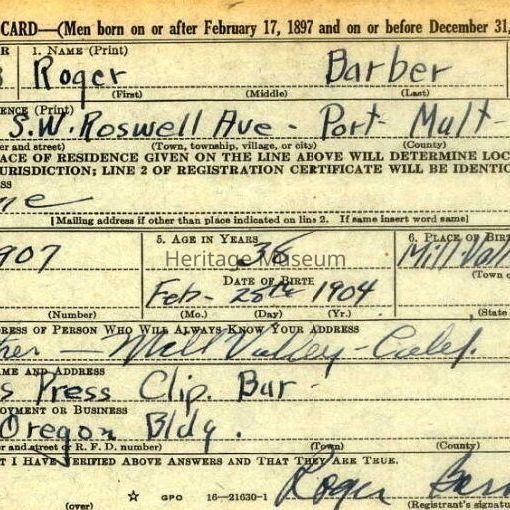 CARD—(Men born on or after February 17, 1897 and on or before December 31,
1. NAME (Print)
Roger Barber
(First) (Middle) (Last)
ENCE (Print)
S.W. Roswell Ave - Port- Mult-
er and street) (Town, township, village, or city) (County)
LACE OF RESIDENCE GIVEN ON THE LINE ABOVE WILL DETERMINE LOC
URISDICTION; LINE 2 OF REGISTRATION CERTIFICATE WILL BE IDENTIC
ESS
me
[Mailing address if other than place indicated on line 2. If same insert word same]
5. AGE IN YEARS 6. PLACE OF BIRT
907 38 Mill Vall
Heritage Museum
DATE OF BIRTH (Town o
Feb- 25th 1904
(Number) (Mo.) (Day) (Yr.) (State
DRESS OF PERSON WHO WILL ALWAYS KNOW YOUR ADDRESS
ther — Mill Valley - Calif.
AME AND ADDRESS
s Press Clip. Bur -
LOYMENT OR BUSINESS
Oregon Bldg.
er and street or R. F. D. number) (Town) (County)
T I HAVE VERIFIED ABOVE ANSWERS AND THAT THEY ARE TRUE.
Roger Bar
(over) ☆ GPO 16—21630-1 (Registrant's signatu